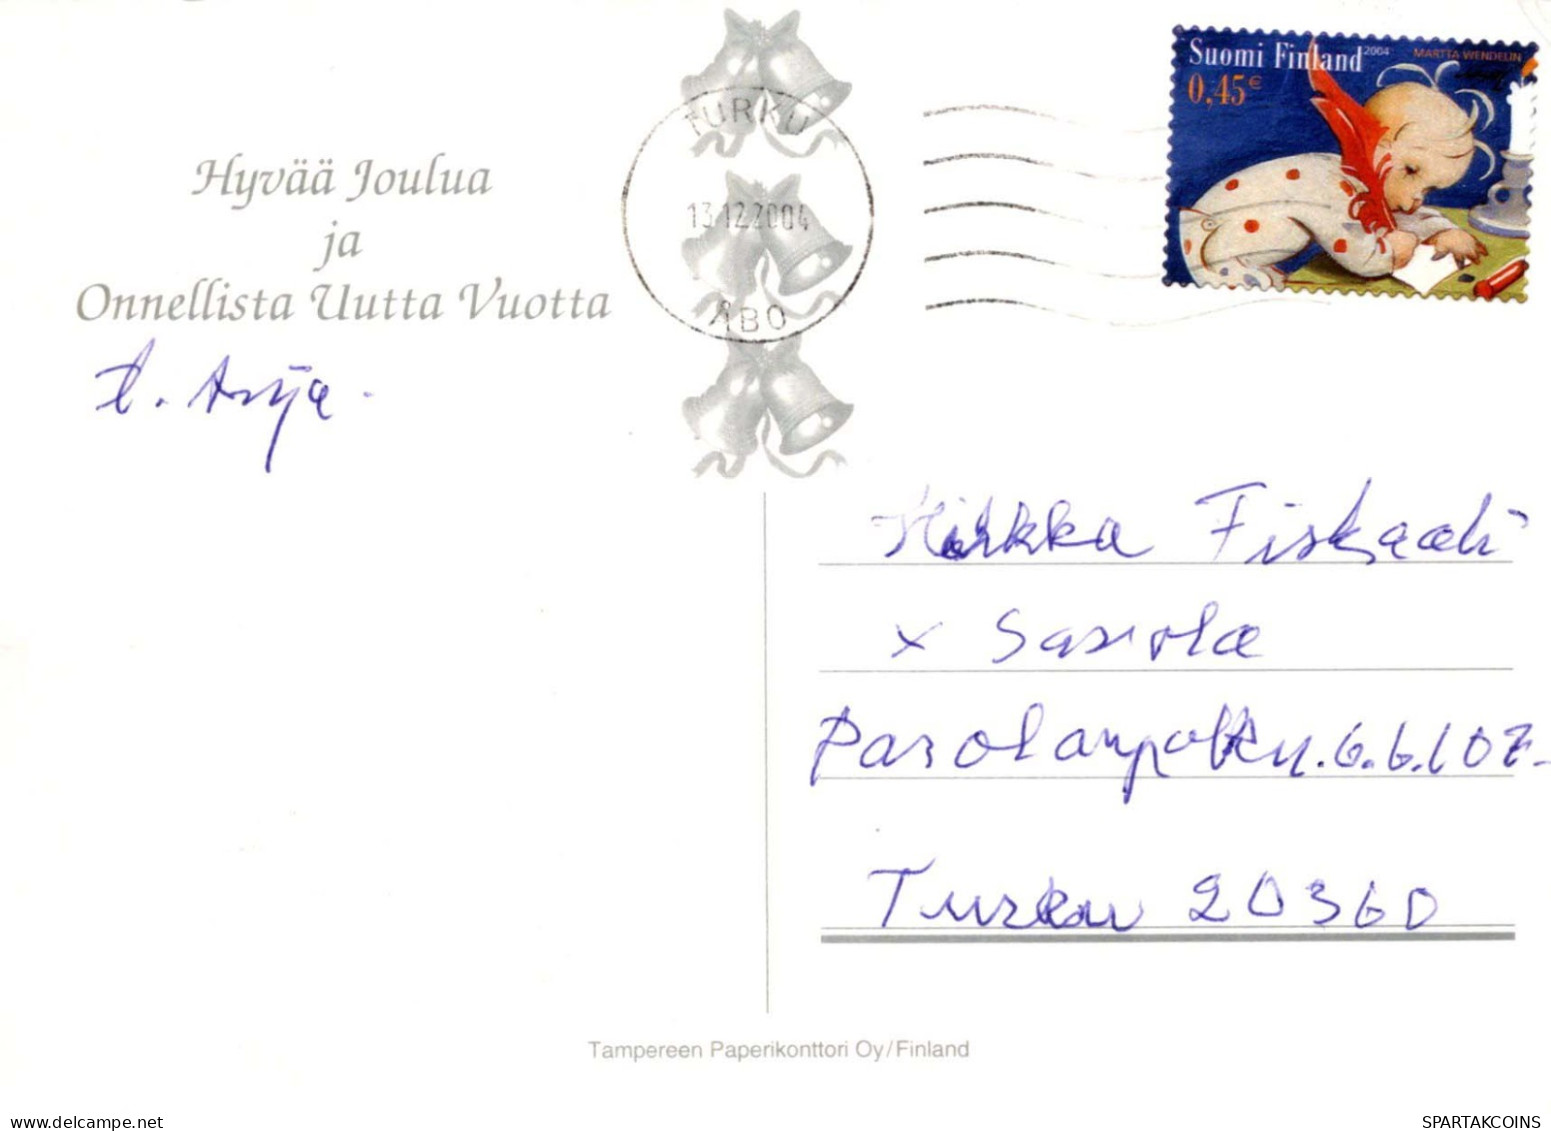 Suomi Finland 2004 MARTTA WENDELIN
0,45€
TURKU
13.12.2004
ÅBO
Hyvää Joulua
ja
Onnellista Uutta Vuotta
t. Arja.
Hirkka Fiskaali
x Sasiola
Turku 20360
Tampereen Paperikonttori Oy/Finland
delcampe.net
SPARTAKCOINS